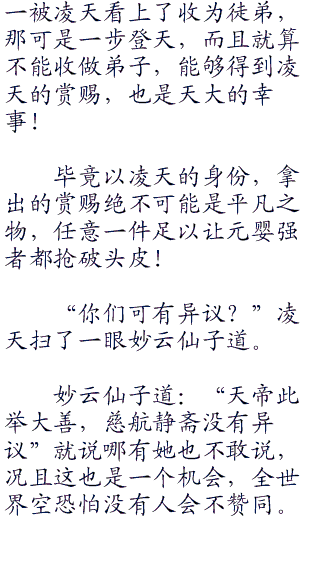 一被凌天看上了收为徒弟，
那可是一步登天，而且就算
不能收做弟子，能够得到凌
天的赏赐，也是天大的幸
事！
毕竟以凌天的身份，拿
出的赏赐绝不可能是平凡之
物，任意一件足以让元婴强
者都抢破头皮！
“你们可有异议？”凌
天扫了一眼妙云仙子道。
妙云仙子道：“天帝此
举大善，慈航静斋没有异
议”就说哪有她也不敢说，
况且这也是一个机会，全世
界空恐怕没有人会不赞同。